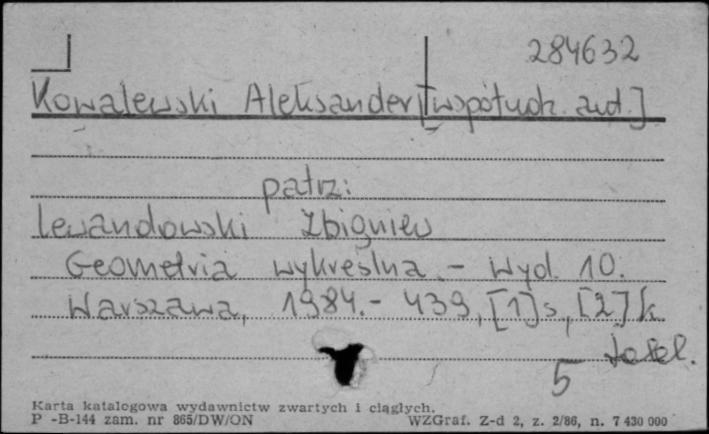 284632
Kowalewski Aleksander [współuch. aut.]
patrz:
Lewandowski Zbigniew
Geometria wykreślna. - Wyd. 10.
Warszawa, 1984. - 439, [1] s., [2] k.
tabl.
5
Karta katalogowa wydawnictw zwartych i ciągłych.
P -B-144 zam. nr 865/DW/ON WZGraf. Z-d 2, z. 2/86, n. 7 430 000